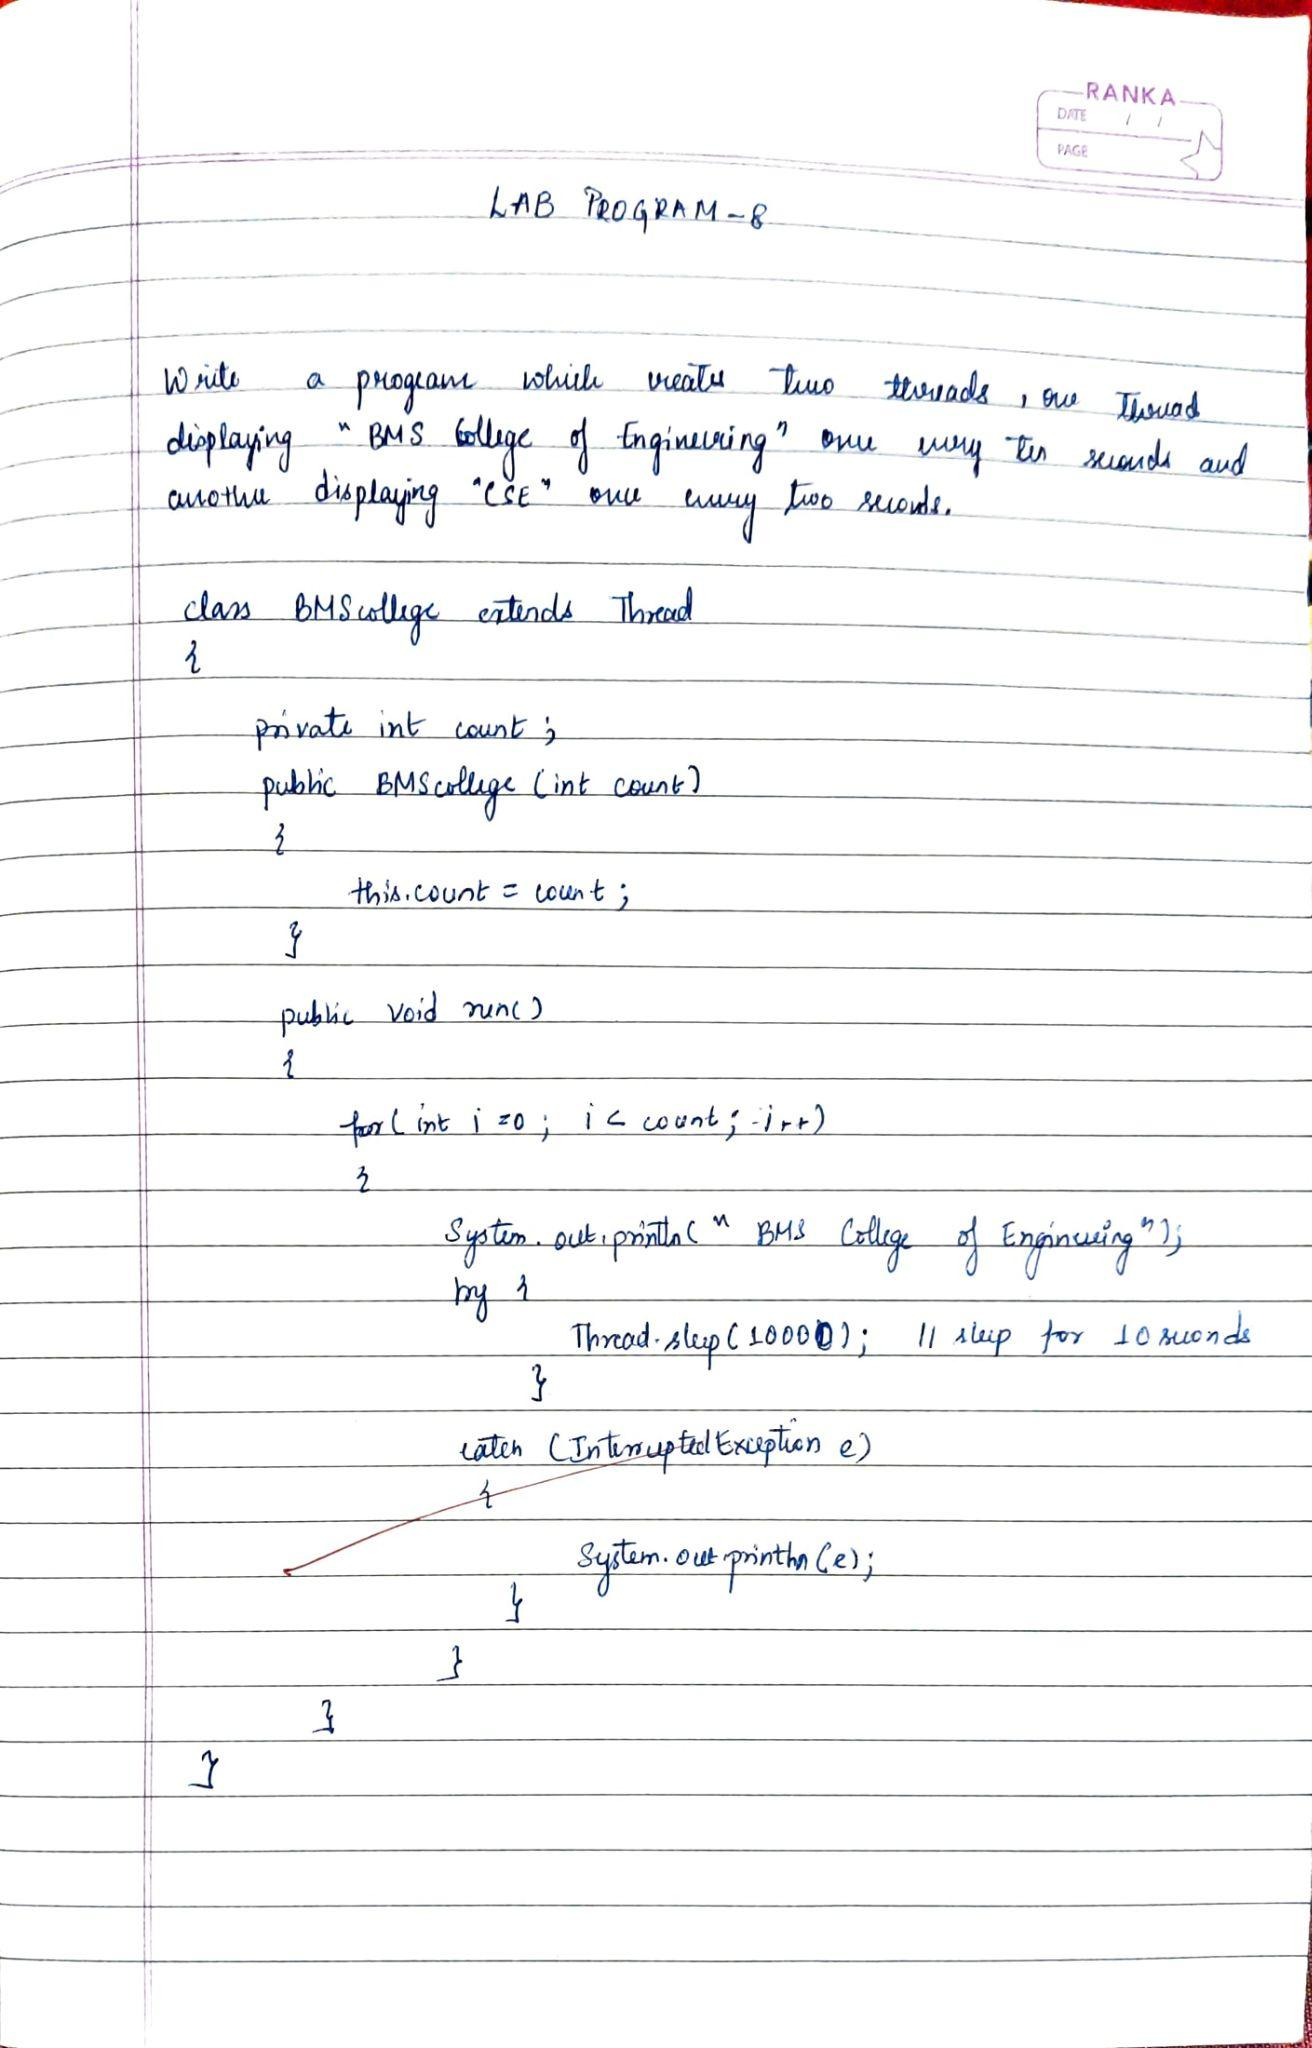 RANKA
DATE / /
PAGE
LAB PROGRAM-8
Write a program which creates two threads, one Thread
displaying "BMS College of Engineering" once every ten seconds and
another displaying "CSE" once every two seconds.
class BMScollege extends Thread
{
private int count;
public BMScollege (int count)
{
this.count = count;
}
public void run()
{
for(int i=0; i< count; i++)
{
System.out.println(" BMS College of Engineering");
try {
Thread.sleep(10000); // sleep for 10 seconds
}
catch (InterruptedException e)
{
System.out.println(e);
}
}
}
}